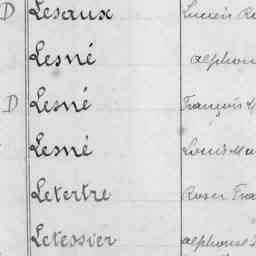 D Lesaux Lucien
Lesné Alphon
D Lesné François M
Lesné Louis Ma
Letertre Rosen Fra
Letessier Alphons